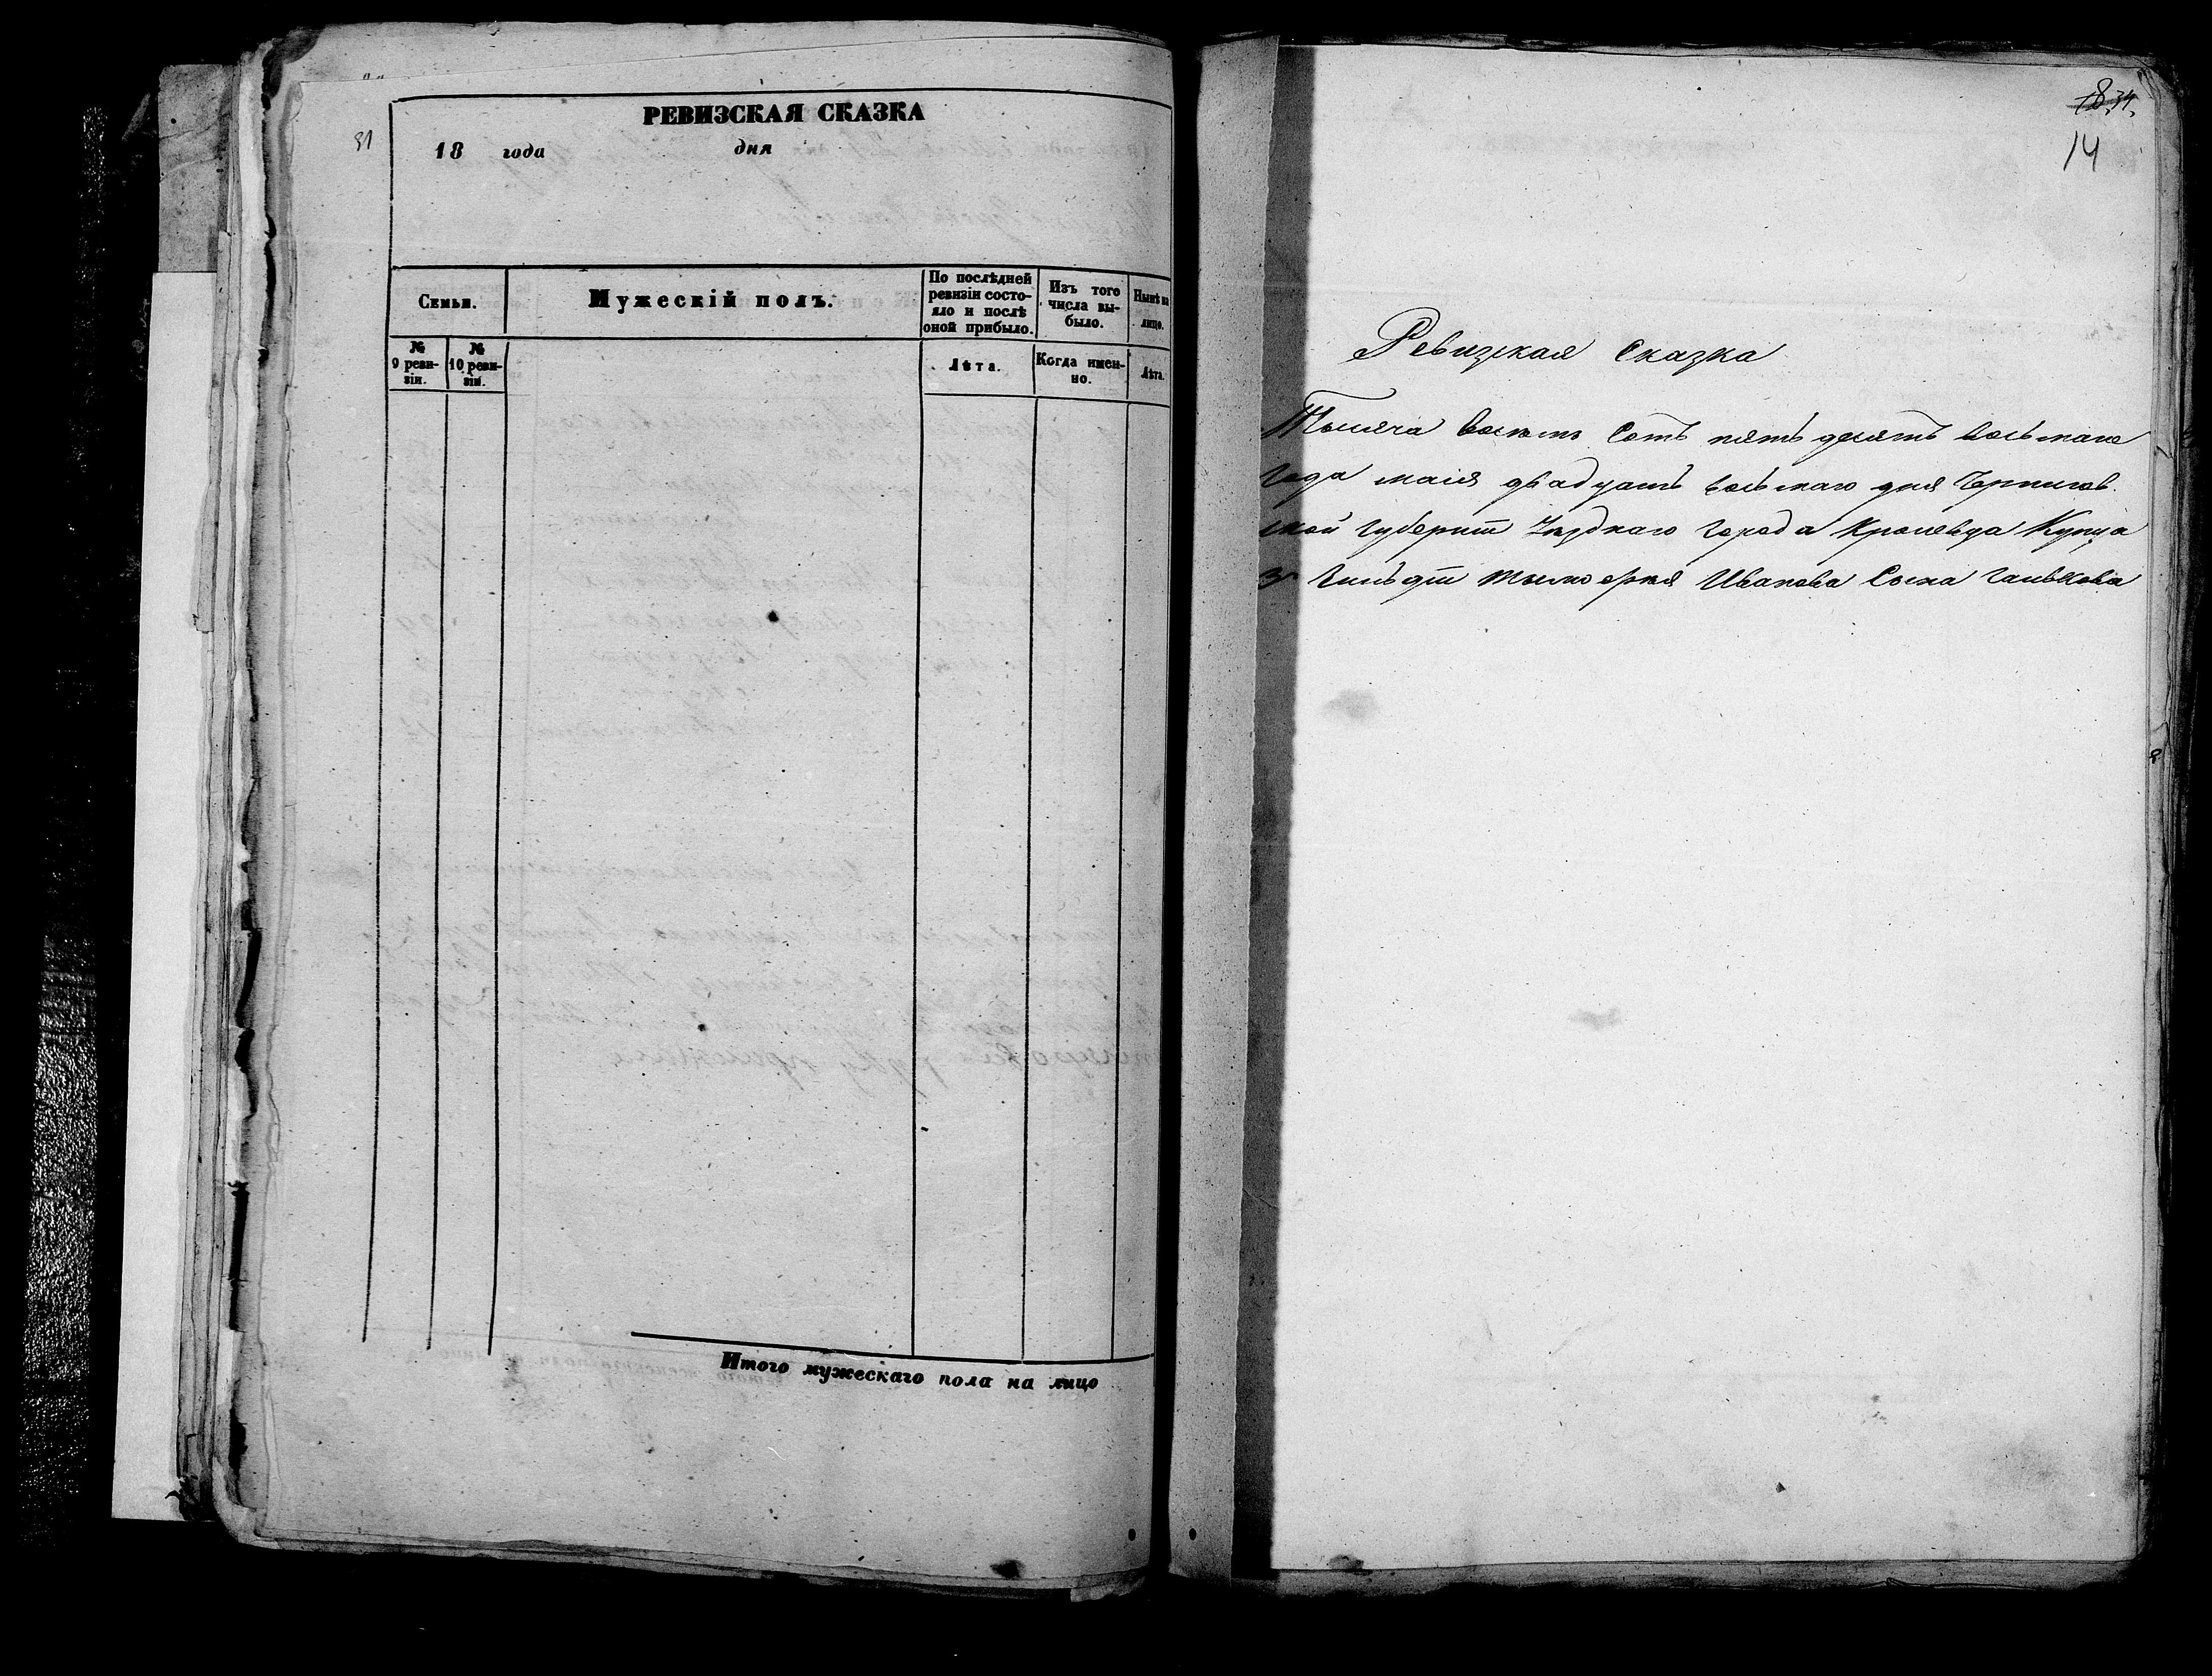 РЕВИЗСКАЯ СКАЗКА
31
18 года дня
Семьи.
Мужескій полъ.
По послѣдней ревизіи состояло и послѣ оной прибыло.
Изъ того числа выбыло.
Нынѣ на лицо.
№ 9 ревизіи.
№ 10 ревизіи.
Лѣта.
Когда именно.
Лѣта.
Итого мужескаго пола на лицо
14
Ревизская Сказка
Тысяча восемь сотъ пятьдесятъ восьмаго
года маія двадцать восьмаго дня Чернигов.
ской губерніи Уѣзднаго города Кролевца Купца
3й Гильдіи Тимофея Иванова Сына